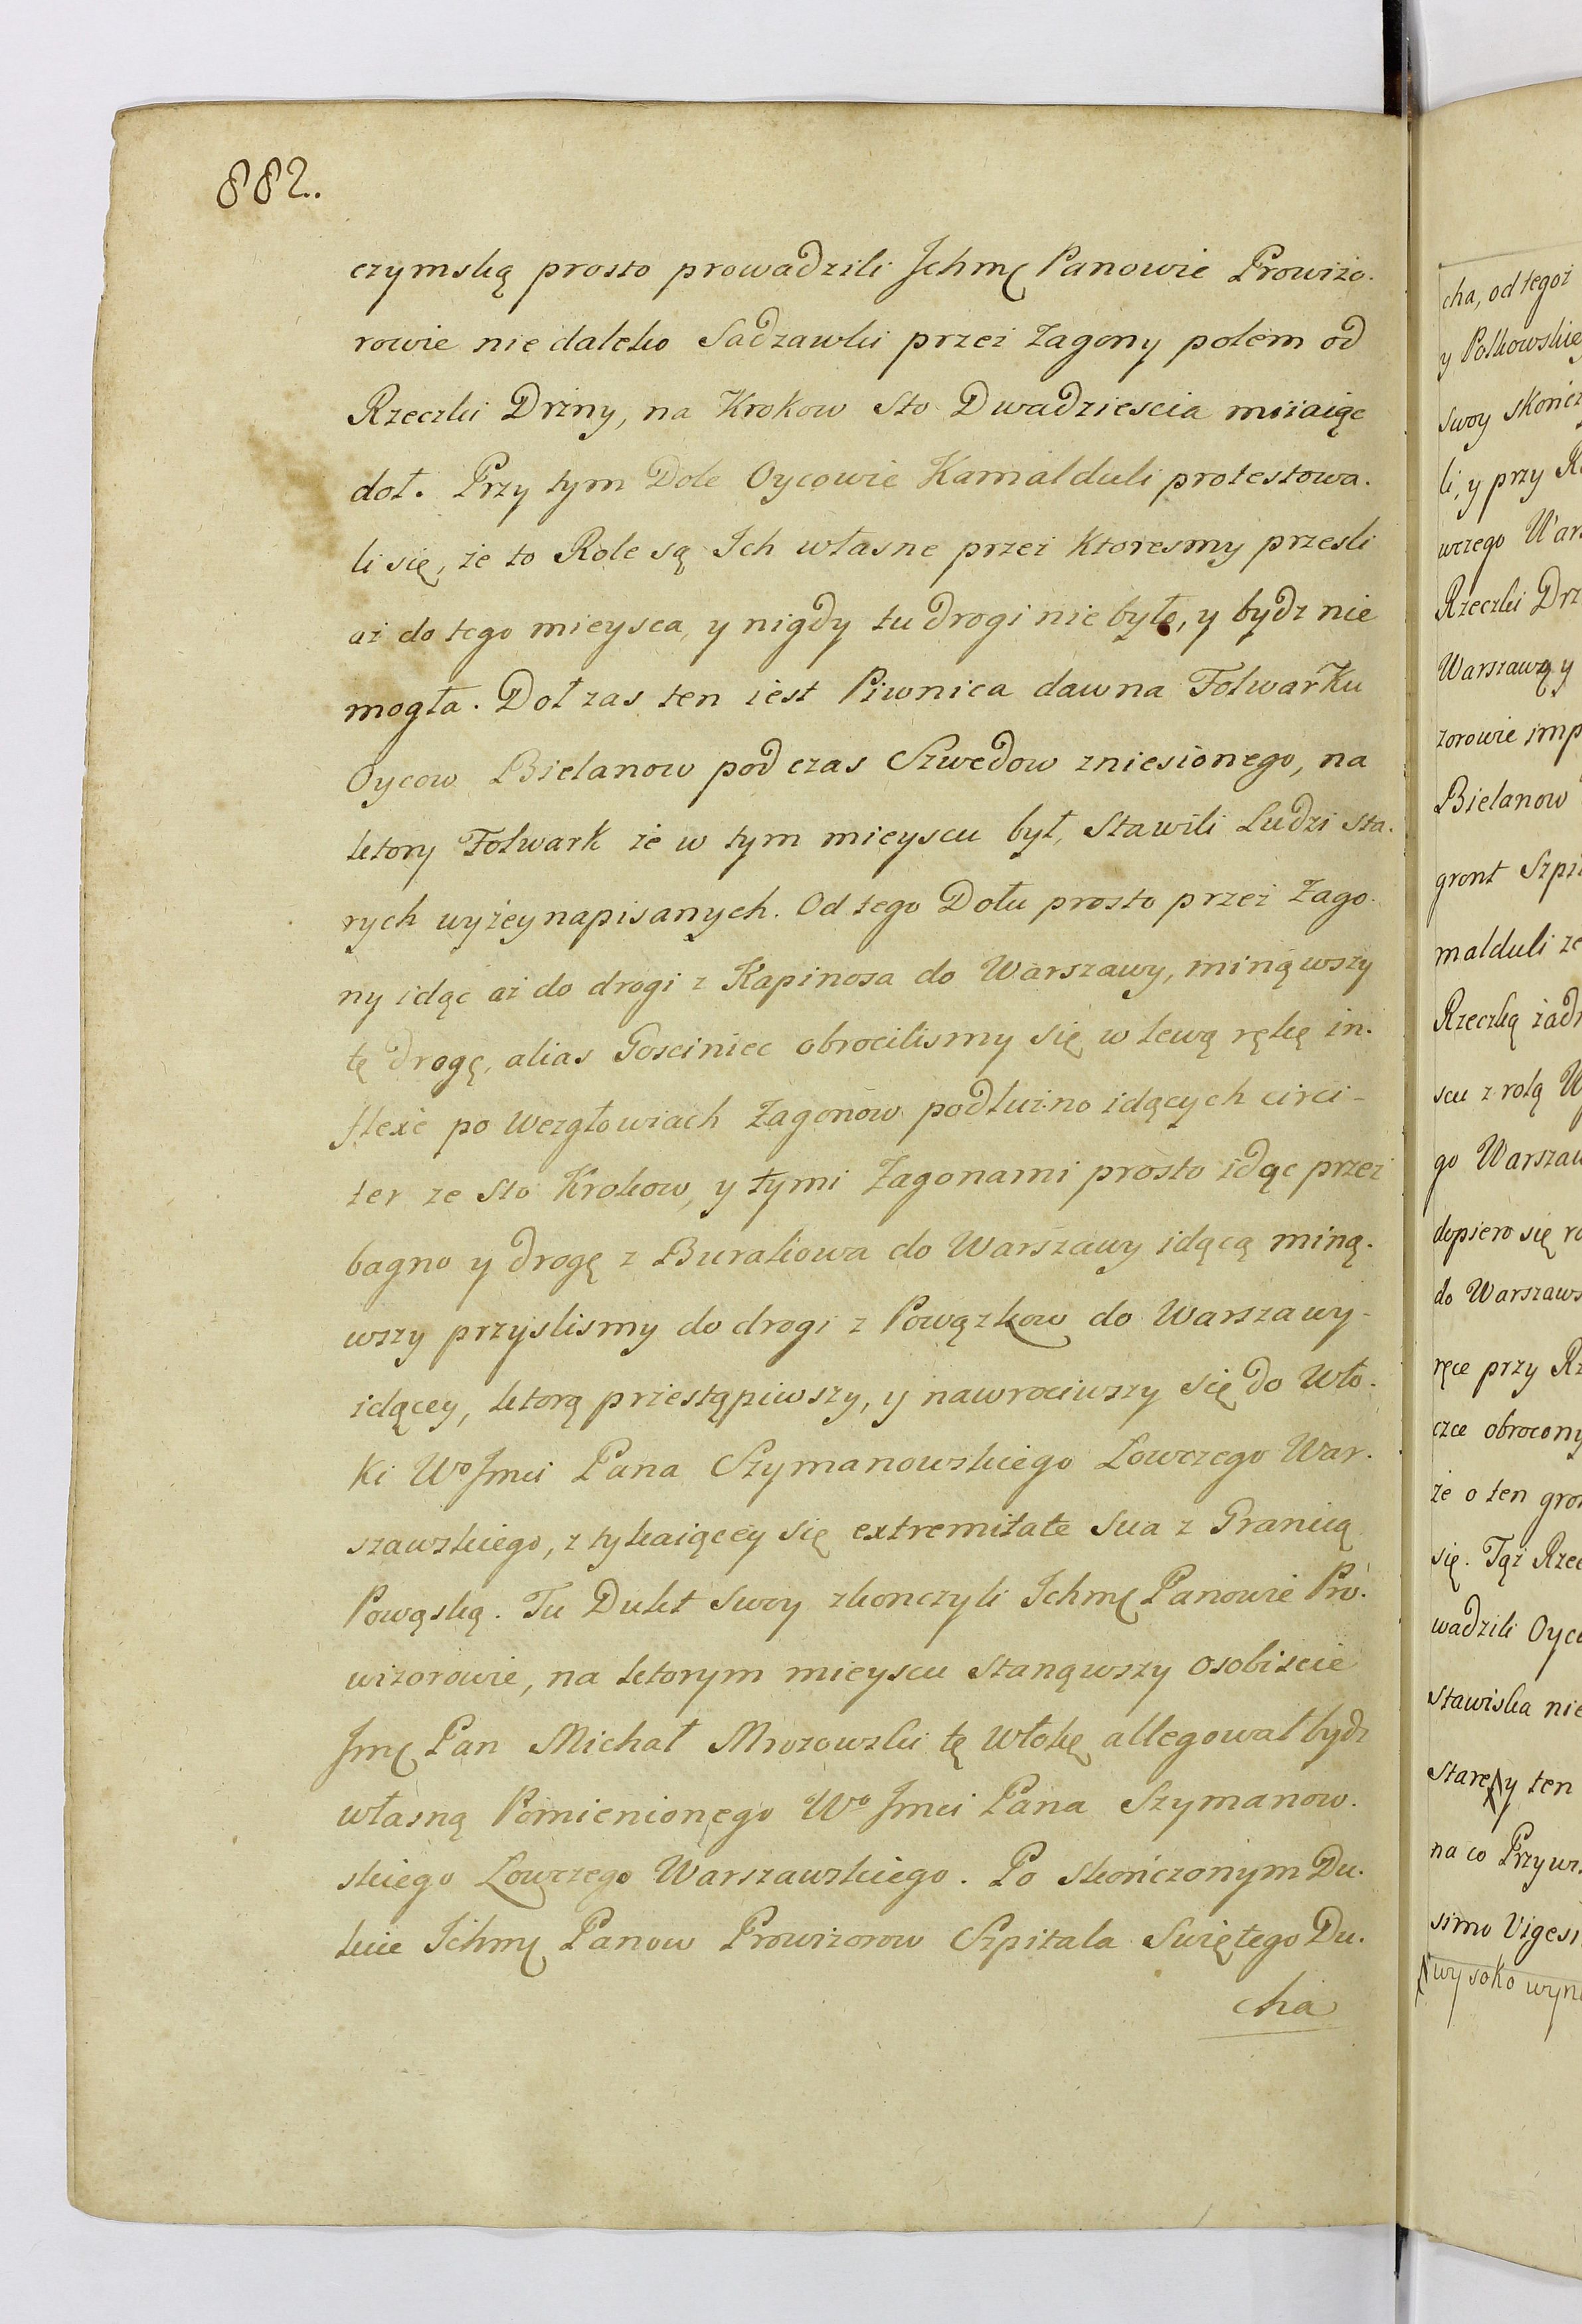 882.
czymską prosto prowadzili Jchmć Panowie Prowizo-
rowie nie daleko Sadzawki przez Zagony polem od
Rzeczki Drzny, na Krokow Sto Dwadziescia miiaiąc
doł. Przy tym Dole Oycowie Kamalduli protestowa-
li się, że to Role są Ich własne przez ktoresmy przesli
aż do tego mieysca, y nigdy tu drogi nie było, y bydz nie
mogła. Doł zas ten iest Piwnica dawna Folwarku
Oycow Bielanow pod czas Szwedow zniesionego, na
ktory Folwark że w tym mieyscu był, Stawili Ludzi sta-
rych wyżey napisanych. Od tego Dołu prosto przez Zago-
ny idąc aż do drogi z Kapinosa do Warszawy, minąwszy
tę drogę, alias Gosciniec obrocilismy się w lewą rękę in-
flexe po Wezgłowiach Zagonow podłużno idących circi-
ter ze Sto Krokow, y tymi Zagonami prosto idąc przez
bagno y drogę z Burakowa do Warszawy idącą miną-
wszy przyslismy do drogi z Powązkow do Warszawy-
idącey, ktorą przestąpiwszy, y nawrociwszy się do Wło-
ki Wo Jmci Pana Szymanowskiego Łowczego War-
szawskiego, z tykaiącey się extremitate sua z Granicą
Powąską. Tu Dukt Swoy zkonczyli Ichmć Panowie Pro-
wizorowie, na ktorym mieyscu Stanąwszy osobiscie
Jmć Pan Michał Mrozowski tę Włokę allegował bydz
własną Pomienionego Wo Jmci Pana Szymanow-
skiego Łowczego Warszawskiego. Po skończonym Du-
kcie Ichmć Panow Prowizorow Szpitala Swiętego Du-
cha
cha, od tegoż
y Polkowskie
swoy skończ
li, y przy
wczego War
Rzeczki Drz
Warszawą y
zorowie imp
Bielanow
gront Szpi
malduli ze
Rzeczką żad
scu z rolą
go Warszaw
dopiero się ro
do Warszaws
ręce przy Rz
czce obrocony
że o ten gro
się. Tąż Rzec
wadzili Oyc
Stawiska nie
Stare y ten
na co Przyw
simo Vigesi
wysoko wyn